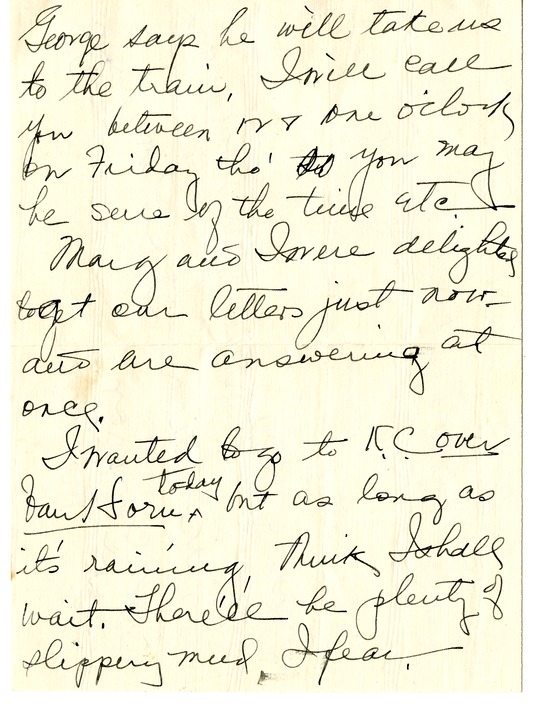 George says he will take us
to the train, I will call
you between 12 & one o'clock
on Friday tho' you may
be sure of the time etc.
Mary and I were delighted
to get our letters just now -
and are answering at
once.
I wanted to go to K.C. over
Van Horn, today but as long as
it's raining, think I shall
wait. There'll be plenty of
slippery mud, I fear.